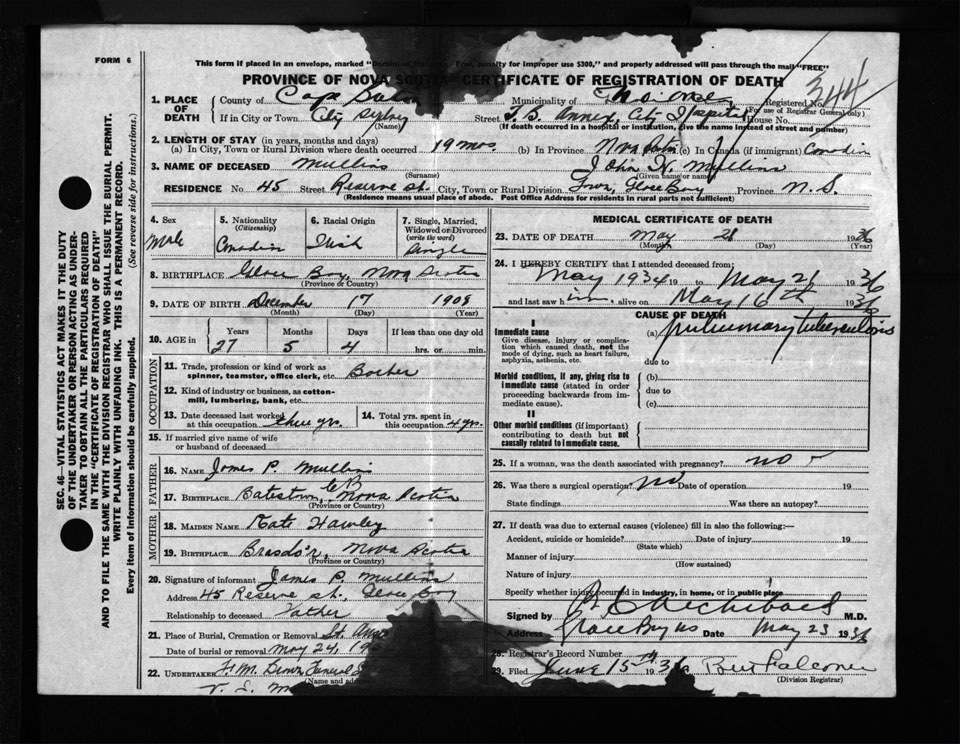 FORM 6
This form if placed in an envelope, marked "Dominion Free, penalty for improper use $300," and properly addressed will pass through the mail "FREE"
PROVINCE OF NOVA SCOTIA CERTIFICATE OF REGISTRATION OF DEATH
344
1. PLACE OF DEATH County of Cape Municipality of Registered No. (For use of Registrar General only)
If in City or Town City Sydney (Name) Street T.B. Annex, City Hospital House No.
(If death occurred in a hospital or institution, give the name instead of street and number)
2. LENGTH OF STAY (in years, months and days)
(a) In City, Town or Rural Division where death occurred 19 mos. (b) In Province Nova Scotia (c) In Canada (if immigrant) Canadian
3. NAME OF DECEASED Mullins (Surname) John K. Mullins (Given name or names)
RESIDENCE No 45 Street Reserve St. City, Town or Rural Division Town, Glace Bay Province N. S.
(Residence means usual place of abode. Post Office Address for residents in rural parts not sufficient)
4. Sex Male
5. Nationality (Citizenship) Canadian
6. Racial Origin Irish
7. Single, Married, Widowed or Divorced (write the word) Single
8. BIRTHPLACE Glace Bay, Nova Scotia
(Province or Country)
9. DATE OF BIRTH December 17 1908
(Month) (Day) (Year)
10. AGE in Years 27 Months 5 Days 4 If less than one day old hrs. or min.
OCCUPATION
11. Trade, profession or kind of work as spinner, teamster, office clerk, etc.
12. Kind of industry or business, as cotton-mill, lumbering, bank, etc.
13. Date deceased last worked at this occupation three yrs.
14. Total yrs. spent in this occupation 4 yrs.
15. If married give name of wife or husband of deceased
FATHER
16. NAME James P. Mullins
17. BIRTHPLACE CB Nova Scotia
(Province or Country)
MOTHER
18. MAIDEN NAME Kate Hawley
19. BIRTHPLACE Brasdo'r, Nova Scotia
(Province or Country)
20. Signature of informant James P. Mullins
Address 45 Reserve St., Glace Bay
Relationship to deceased Father
21. Place of Burial, Cremation or Removal St.
Date of burial or removal May 24, 19
22. UNDERTAKER Funeral
(Name and
MEDICAL CERTIFICATE OF DEATH
23. DATE OF DEATH May 21 1936
(Month) (Day) (Year)
24. I HEREBY CERTIFY that I attended deceased from:
May 1934 19 to May 21 1936
and last saw him alive on May 16th 1936
CAUSE OF DEATH
I
Immediate cause
Give disease, injury or complication which caused death, not the mode of dying, such as heart failure, asphyxia, asthenia, etc.
(a) pulmonary tuberculosis
due to
Morbid conditions, if any, giving rise to immediate cause (stated in order proceeding backwards from immediate cause).
(b)
due to
(c)
II
Other morbid conditions (if important) contributing to death but not causally related to immediate cause.
25. If a woman, was the death associated with pregnancy? no
26. Was there a surgical operation? no Date of operation 19
State findings Was there an autopsy?
27. If death was due to external causes (violence) fill in also the following:—
Accident, suicide or homicide? Date of injury 19
(State which)
Manner of injury
(How sustained)
Nature of injury
Specify whether injury occurred in industry, in home, or in public place
Signed by Archibald M.D.
Address Glace Bay NS Date May 23 1936
28. Registrar's Record Number
29. Filed June 15th 1936 Falconer
(Division Registrar)
SEC. 46—VITAL STATISTICS ACT MAKES IT THE DUTY
OF THE UNDERTAKER OR PERSON ACTING AS UNDER-
TAKER TO OBTAIN ALL THE PARTICULARS REQUIRED
IN THE "CERTIFICATE OF REGISTRATION OF DEATH"
AND TO FILE THE SAME WITH THE DIVISION REGISTRAR WHO SHALL ISSUE THE BURIAL PERMIT.
WRITE PLAINLY WITH UNFADING INK. THIS IS A PERMANENT RECORD.
Every item of Information should be carefully supplied. (See reverse side for instructions.)